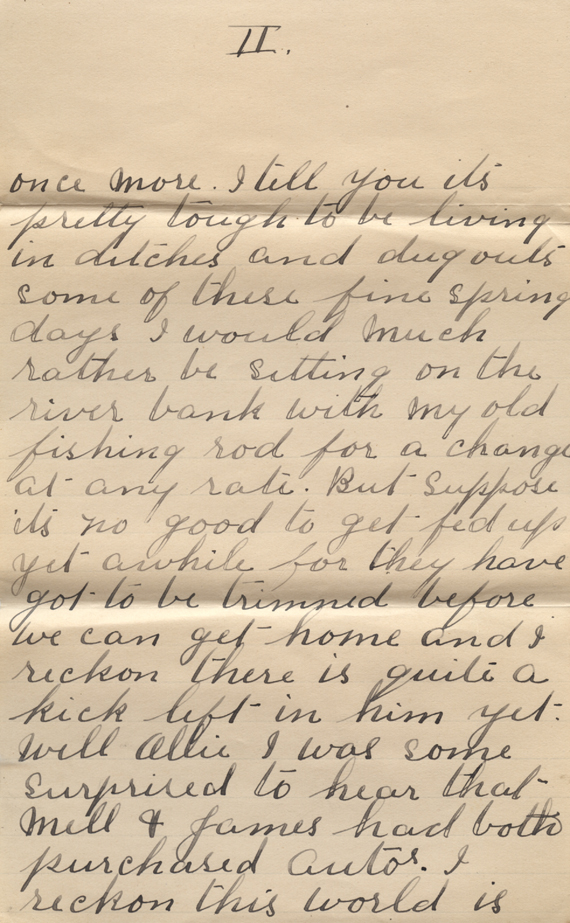 II.
once more. I tell you its
pretty tough to be living
in ditches and dugouts
some of these fine spring
days I would much
rather be sitting on the
river bank with my old
fishing rod for a change
at any rate. But suppose
its no good to get fed up
yet awhile for they have
got to be trimmed before
we can get home and I
reckon there is quite a
kick left in him yet.
Well Allie I was some
surprised to hear that
Mell & James had both
purchased autos. I
reckon this world is